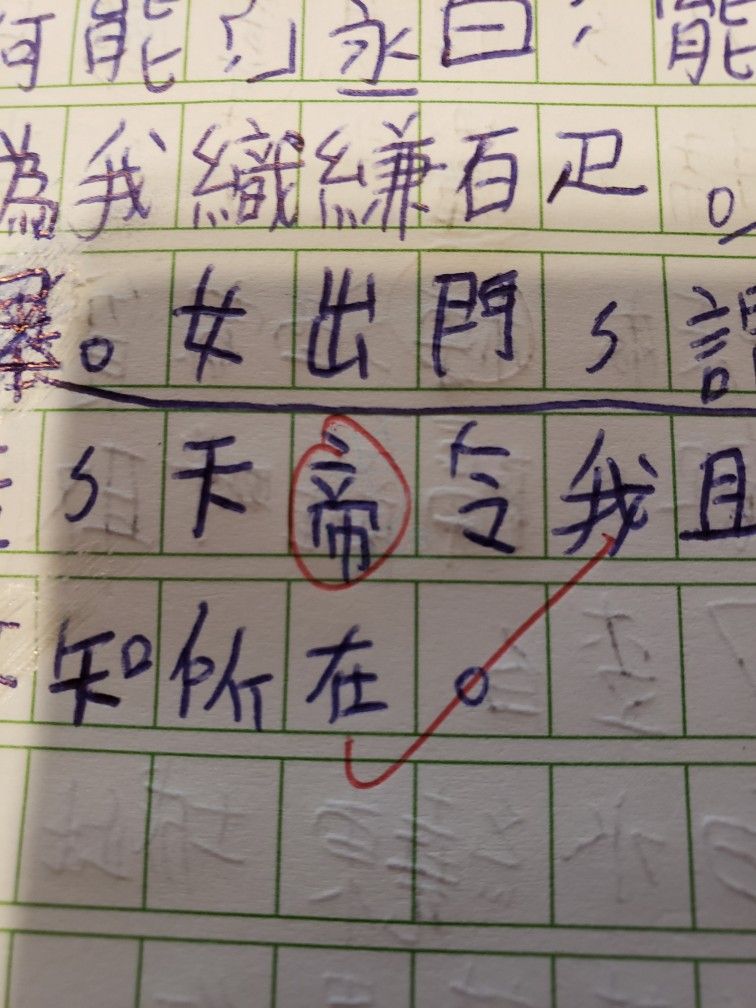 何能？」永曰：能
為我織縑百疋。
。女出門，謂
，天帝令我且
知所在。